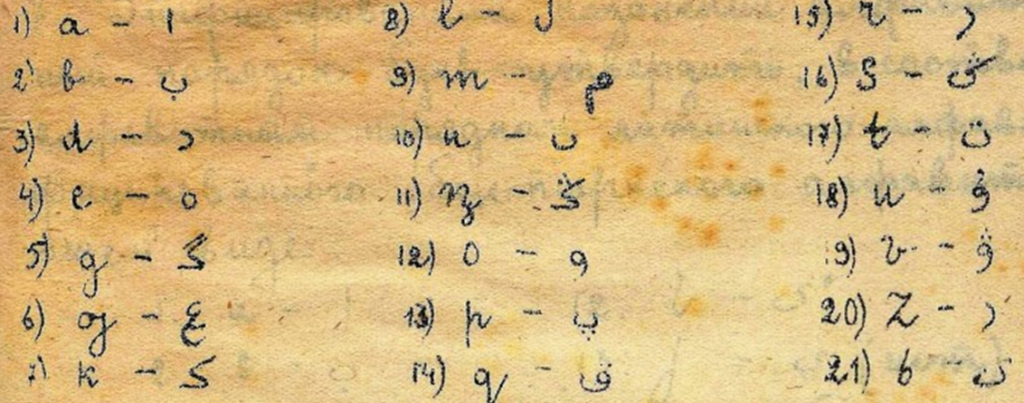 1) a - ا
2) b - ب
3) d - د
4) e - ە
5) g - گ
6) ƣ - غ
7) k - ک
8) l - ل
9) m - م
10) n - ن
11) ꞑ - ڭ
12) o - و
13) p - پ
14) q - ق
15) r - ر
16) s -
17) t - ت
18) u - ۇ
19) v - ۋ
20) z - ز
21) ь - ى